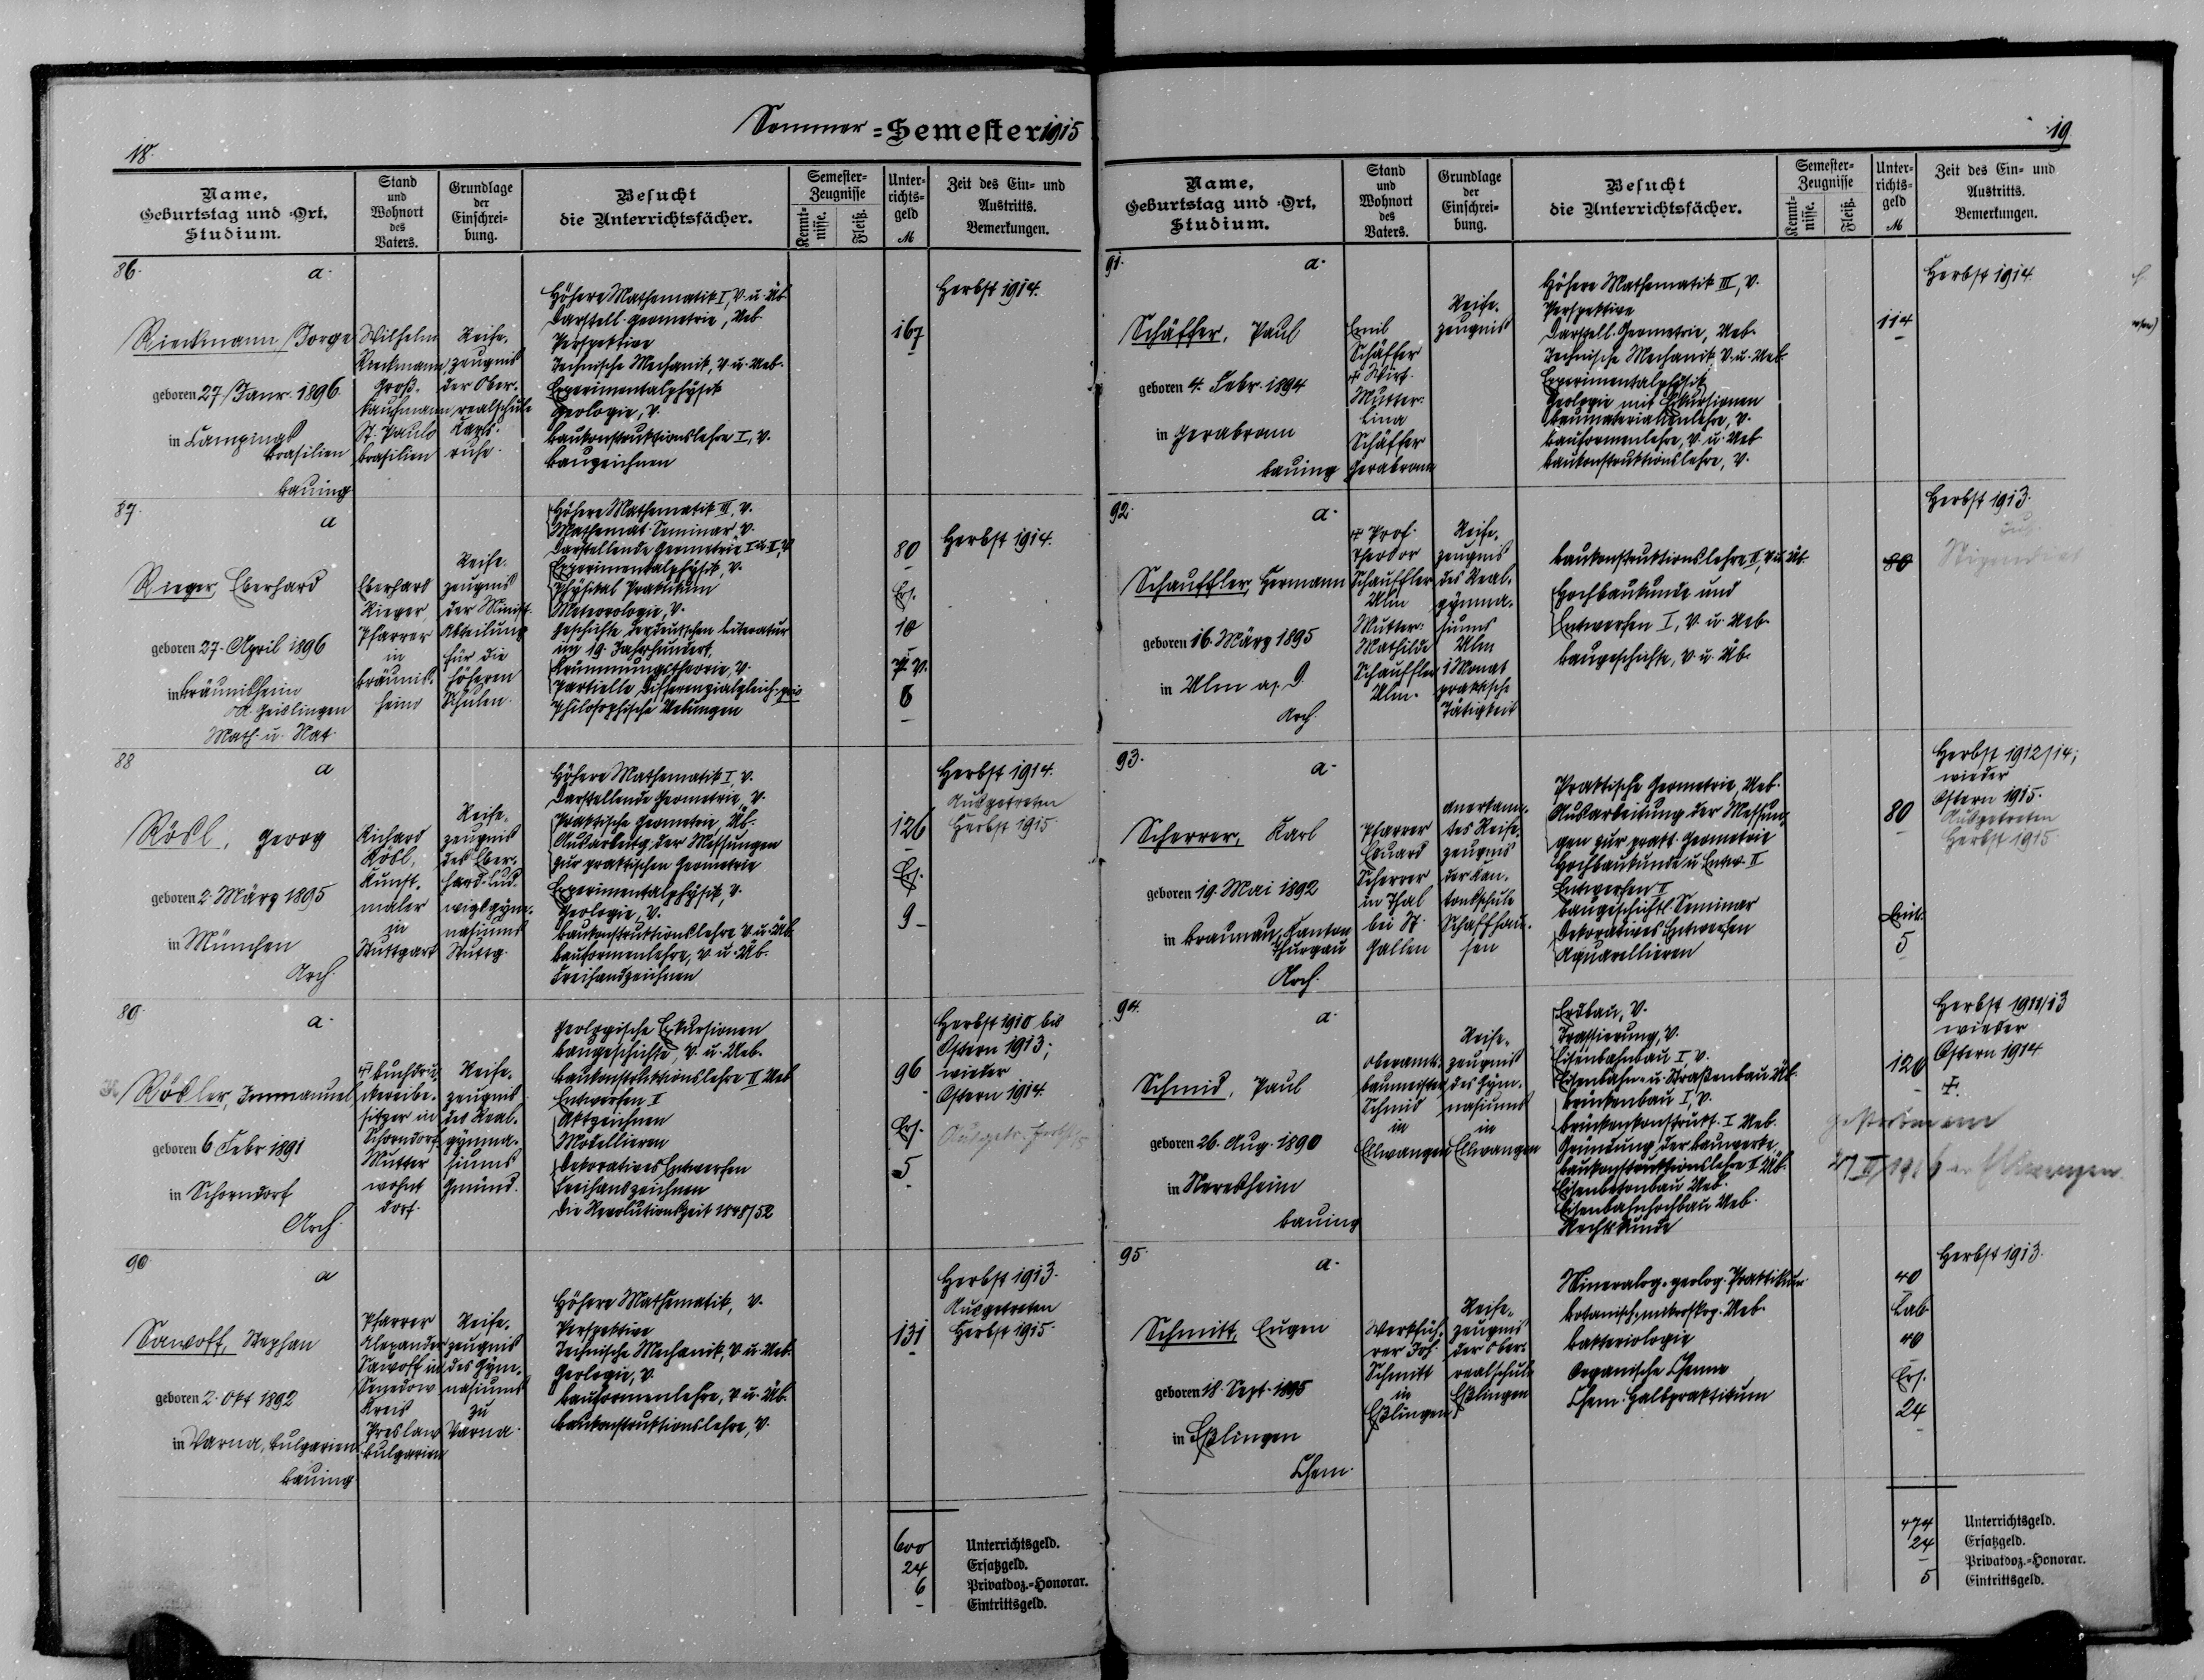 Sommer=Semester 1915
18.
Name,
Geburtstag und =Ort,
Studium.
Stand
und
Wohnort
des
Vaters.
Grundlage
der
Einschrei=
bung.
Besucht
die Unterrichtsfächer.
Semester=
Zeugnisse
Kennt=
nisse.
Fleiß.
Unter=
richts=
geld
M
Zeit des Ein= und
Austritts.
Bemerkungen.
86.
a.
Rieckmann, Jorge
geboren 27. Janr. 1896.
in Campinas
Brasilien
Bauing
Wilhelm
Rieckmann,
Groß-
kaufmann
St. Paulo
Brasilien
Reife-
zeugnis
der Ober-
realschule
Karls-
ruhe.
Höhere Mathematik I, V. u. Üb.
Darstell. Geometrie, Ueb.
Perspektive
Technische Mechanik, V. u. Ueb.
Experimentalphysik
Geologie, V.
Baukonstruktionslehre I, V.
Bauzeichnen
167
Herbst 1914.
87.
a
Rieger, Eberhard
geboren 27. April 1896
in Bräunisheim
OA. Geislingen
Math. u. Nat.
Eberhard
Rieger,
Pfarrer
in
Bräunis-
heim
Reife-
zeugnis
der Minist.
Abteilung
für die
höheren
Schulen.
Höhere Mathematik III, V.
Mathemat. Seminar, V.
Darstellende Geometrie I u. II, V
Experimentalphysik, V.
Physikal. Praktikum
Meteorologie, V.
Geschichte der deutschen Literatur
im 19. Jahrhundert.
Krümmungstheorie, V.
Partielle Differenzialgleich-gen
Philosophische Uebungen
80
Ers.
10
P. V.
6
Herbst 1914.
88
a
Rösl, Georg
geboren 2. März 1895
in München
Arch.
Richard
Rösl,
Kunst-
maler
in
Stuttgart
Reife-
zeugnis
des Eber-
hard-Lud-
wigsgym-
nasiums
Stuttg.
Höhere Mathematik I, V.
Darstellende Geometrie, V.
Praktische Geometrie, Üb.
Ausarbeitg. der Messungen
zur praktischen Geometrie
Experimentalphysik, V.
Geologie, V.
Baukonstruktionslehre V. u. Üb.
Bauformenlehre, V. u. Üb.
Freihandzeichnen
126
Ers.
9
Herbst 1914.
Ausgetreten
Herbst 1915.
89.
a.
Rösler, Immanuel
geboren 6. Febr. 1891
in Schorndorf
Arch.
† Buchdru-
ckereibe-
sitzer in
Schorndorf
Mutter
wohnt
dort.
Reife-
zeugnis
des Real-
gymna-
siums
Gmünd.
Geologische Exkursionen
Baugeschichte, V. u. Ueb.
Baukonstruktionslehre II Ueb
Entwerfen I
Aktzeichnen
Modellieren
Dekoratives Entwerfen
Freihandzeichnen
Die Revolutionszeit 1848/52
96
Ers.
5
Herbst 1910 bis
Ostern 1913;
wieder
Ostern 1914.
Ausgetr. Herbst 15
90
a
Sawoff, Stephan
geboren 2. Okt 1892
in Varna, Bulgarien
Bauing
Pfarrer
Alexander
Sawoff in
Kreis
Preslaw
Bulgarien
Reife-
zeugnis
des Gym-
nasiums
zu
Varna.
Höhere Mathematik, V.
Perspektive
Technische Mechanik, V. u. Ueb.
Geologie, V.
Bauformenlehre, V. u. Üb.
Baukonstruktionslehre, V.
131
Herbst 1913.
Ausgetreten
Herbst 1915.
600 Unterrichtsgeld.
24 Ersatzgeld.
6 Privatdoz.=Honorar.
– Eintrittsgeld.
19.
Name,
Geburtstag und =Ort,
Studium.
Stand
und
Wohnort
des
Vaters.
Grundlage
der
Einschrei=
bung.
Besucht
die Unterrichtsfächer.
Semester=
Zeugnisse
Kennt=
nisse.
Fleiß.
Unter=
richts=
geld
M
Zeit des Ein= und
Austritts.
Bemerkungen.
91.
a.
Schäffer, Paul
geboren 4. Febr. 1894
in Gerabronn
Bauing
Emil
Schäffer
† Wirt.
Mutter:
Lina
Schäffer
Gerabronn
Reife-
zeugnis
Höhere Mathematik III, V.
Perspektive
Darstell. Geometrie, Ueb.
Technische Mechanik, V. u. Ueb.
Experimentalphysik
Geologie mit Exkursionen
Baumaterialienlehre, V.
Bauformenlehre, V. u. Ueb.
Baukonstruktionslehre, V.
114
Herbst 1914.
92.
a.
Schauffler, Hermann
geboren 16. März 1895
in Ulm a. D.
Arch.
† Prof.
Theodor
Schauffler
Ulm
Mutter:
Mathilde
Schauffler
Ulm.
Reife-
zeugnis
des Real-
gymna-
siums
Ulm
1 Monat
praktische
Tätigkeit
Baukonstruktionslehre II, V. u. Üb.
Hochbaukunde und
Entwerfen I, V. u. Ueb.
Baugeschichte, V. u. Üb.
80
Herbst 1913.
93.
a.
Scherrer, Karl
geboren 19. Mai 1892
in Braunau, Kanton
Thurgau
Arch.
Pfarrer
Eduard
Scherrer
in Thal
bei St.
Gallen
Anerkann-
tes Reife-
zeugnis
der Kan-
tonsschule
Schaffhau-
sen
Praktische Geometrie, Ueb.
Ausarbeitung der Messun-
gen zur prakt. Geometrie
Hochbaukunde u. Entw. II
Entwerfen II
Baugeschichtl. Seminar
Dekoratives Entwerfen
Aquarellieren
80
Eint.
5
Herbst 1912/14;
wieder
Ostern 1915.
Ausgetreten
Herbst 1915.
94.
a.
Schmid, Paul
geboren 26. Aug. 1890
in Neresheim
Bauing
Oberamts-
baumeister
Schmid
in
Ellwangen
Reife-
zeugnis
des Gym-
nasiums
in
Ellwangen
Erdbau, V.
Trassierung, V.
Eisenbahnbau I, V.
Eisenbahn- u. Straßenbau Üb.
Brückenbau I, V.
Brückenkonstrukt. I Ueb.
Gründung der Bauwerke,
Baukonstruktionslehre I Üb.
Eisenbetonbau Ueb.
Eisenbahnhochbau Ueb.
Rechtskunde
120
Herbst 1911/13
wieder
Ostern 1914
†.
gestorben am
in Ellwangen.
95.
a.
Schmitt, Eugen
geboren 18. Sept. 1895
in Eßlingen
Chem.
Werkfüh-
rer Joh.
Schmitt
in
Eßlingen
Reife-
zeugnis
der Ober-
realschule
Eßlingen
Mineralog.-geolog. Praktikum
Botanisch-mikroskop. Ueb.
Bakteriologie
Organische Chemie
Chem. Halbpraktikum
40
Lab.
40
Ers.
24
Herbst 1913.
474 Unterrichtsgeld.
24 Ersatzgeld.
– Privatdoz.=Honorar.
5 Eintrittsgeld.